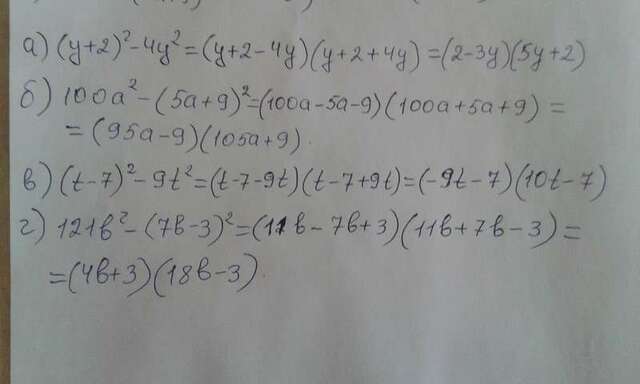 а) (y+2)²-4y²=(y+2-4y)(y+2+4y)=(2-3y)(5y+2)
б) 100a²-(5a+9)²=(100a-5a-9)(100a+5a+9)=
=(95a-9)(105a+9).
в) (t-7)²-9t²=(t-7-9t)(t-7+9t)=(-9t-7)(10t-7)
г) 121b²-(7b-3)²=(11b-7b+3)(11b+7b-3)=
=(4b+3)(18b-3).